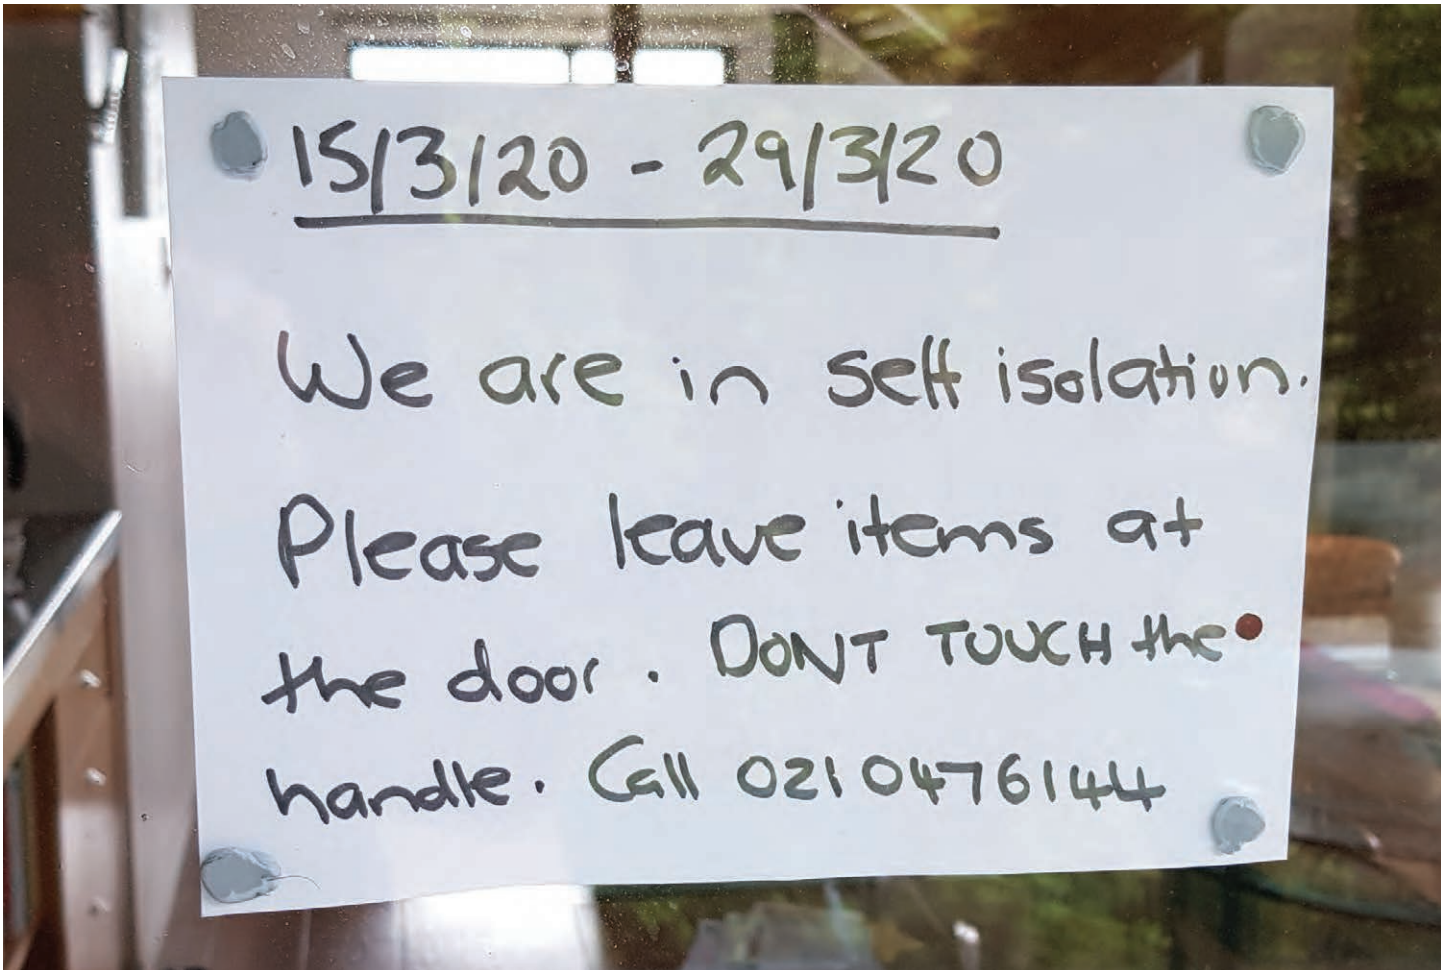 15/3/20 - 29/3/20
We are in self isolation.
Please leave items at
the door. DONT TOUCH the
handle. Call 0210476144